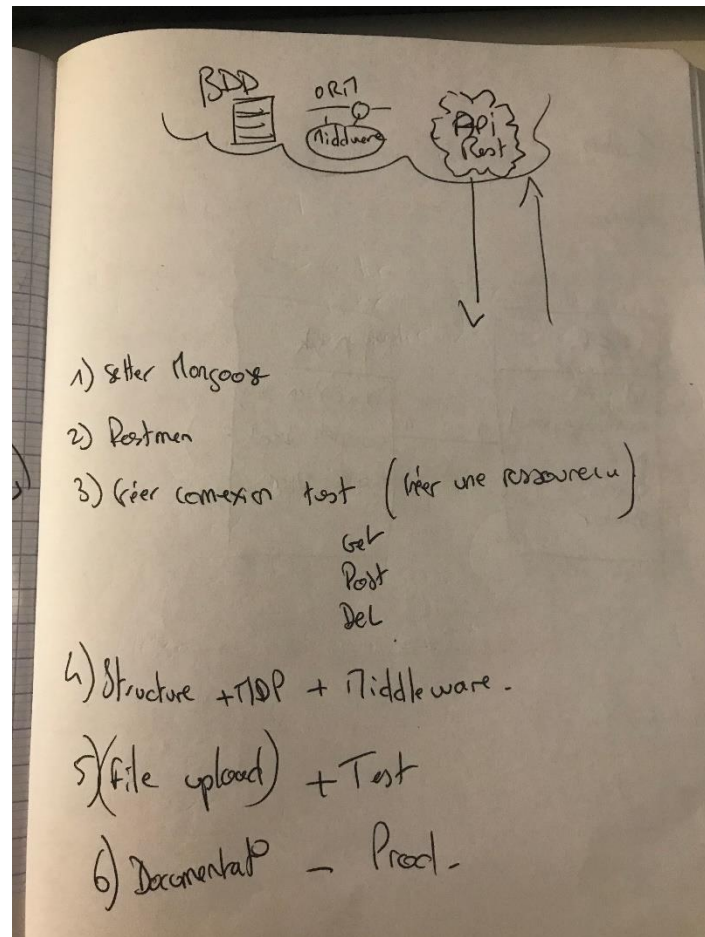 BDD
ORM
Middwere
APi
Rest
1) setter Mongoose
2) Postmen
3) Créer connexion test (Créer une ressource)
Get
Post
Del
4) Structure + MDP + Middleware.
5) (File upload) + Test
6) Documentat° - Prod.